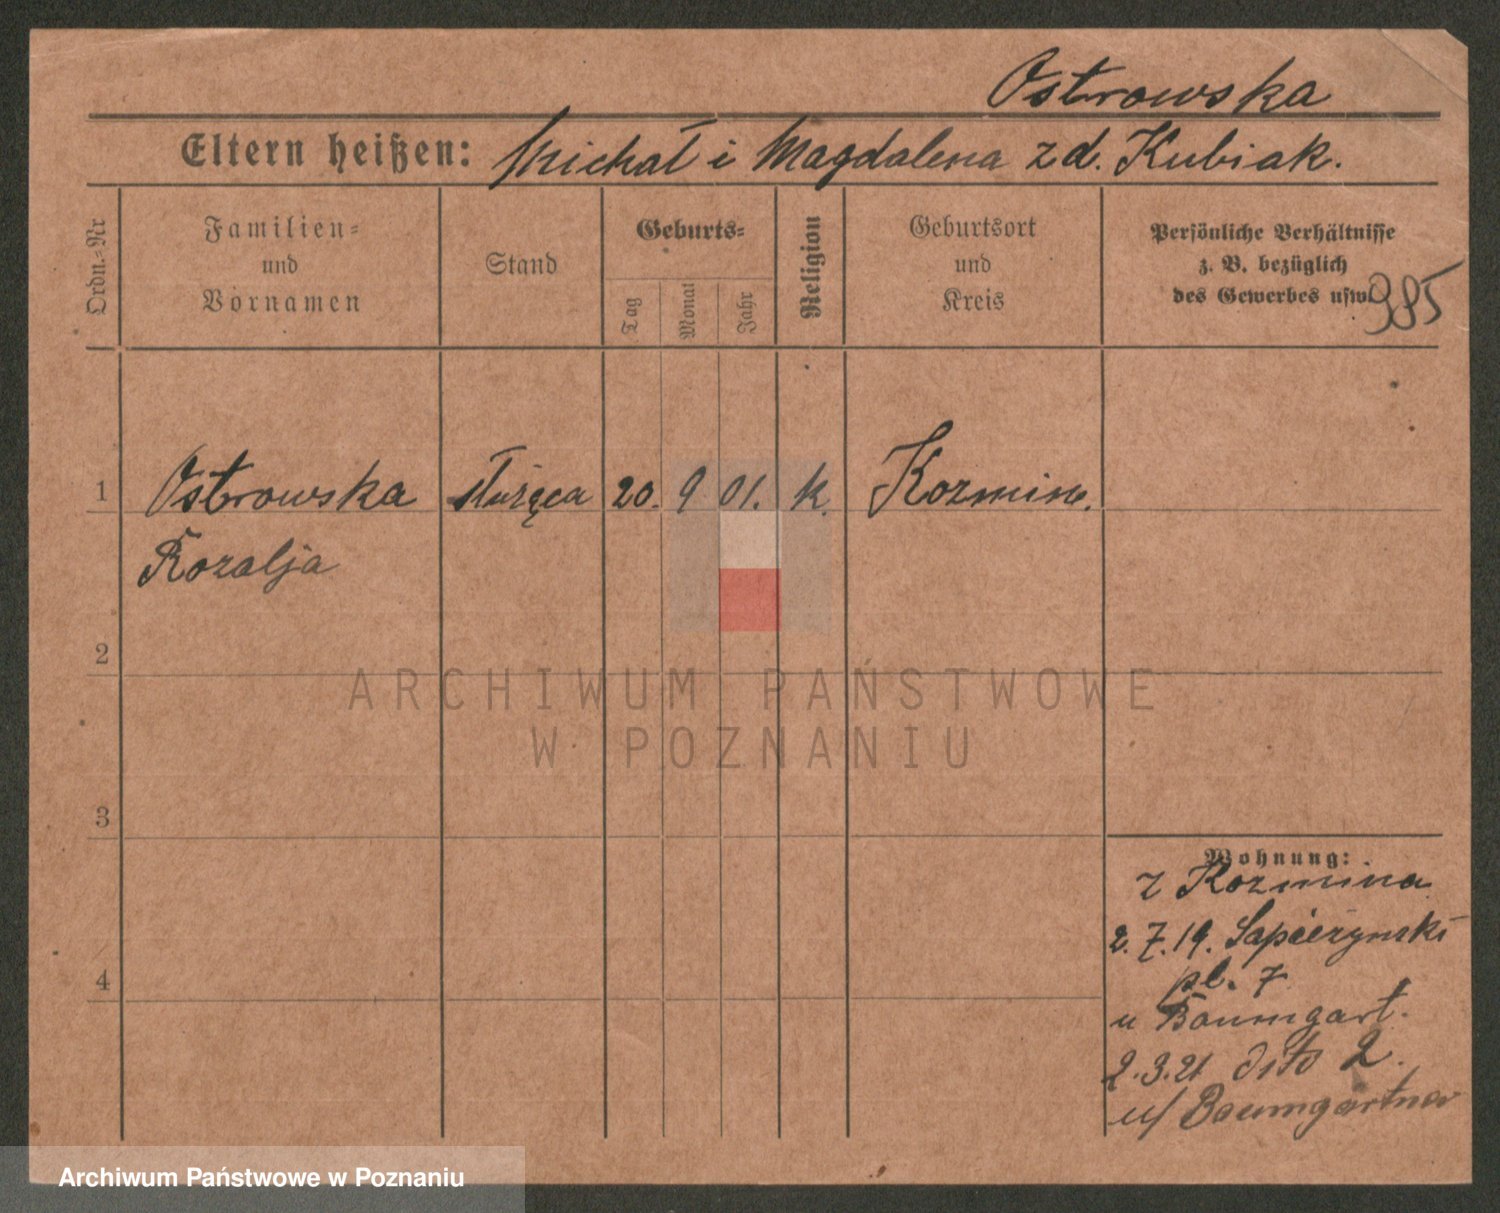 Ostrowska
Eltern heißen: Michał i Magdalena z d. Kubiak.
Ordn.-Nr
Familien-
und
Vornamen
Stand
Geburts-
Tag
Monat
Jahr
Religion
Geburtsort
und
Kreis
Persönliche Verhältnisse
z. B. bezüglich
des Gewerbes usw.
985
1 Ostrowska służąca 20. 9 01. k. Kozmin.
Rozalja
2
ARCHIWUM PAŃSTWOWE
W POZNANIU
3
Wohnung:
z Kozmina
2.7.19. Sapieżynski
4
pl. 7
u Baumgart.
2.3.21 dito 2.
u/ Baumgartner
Archiwum Państwowe w Poznaniu